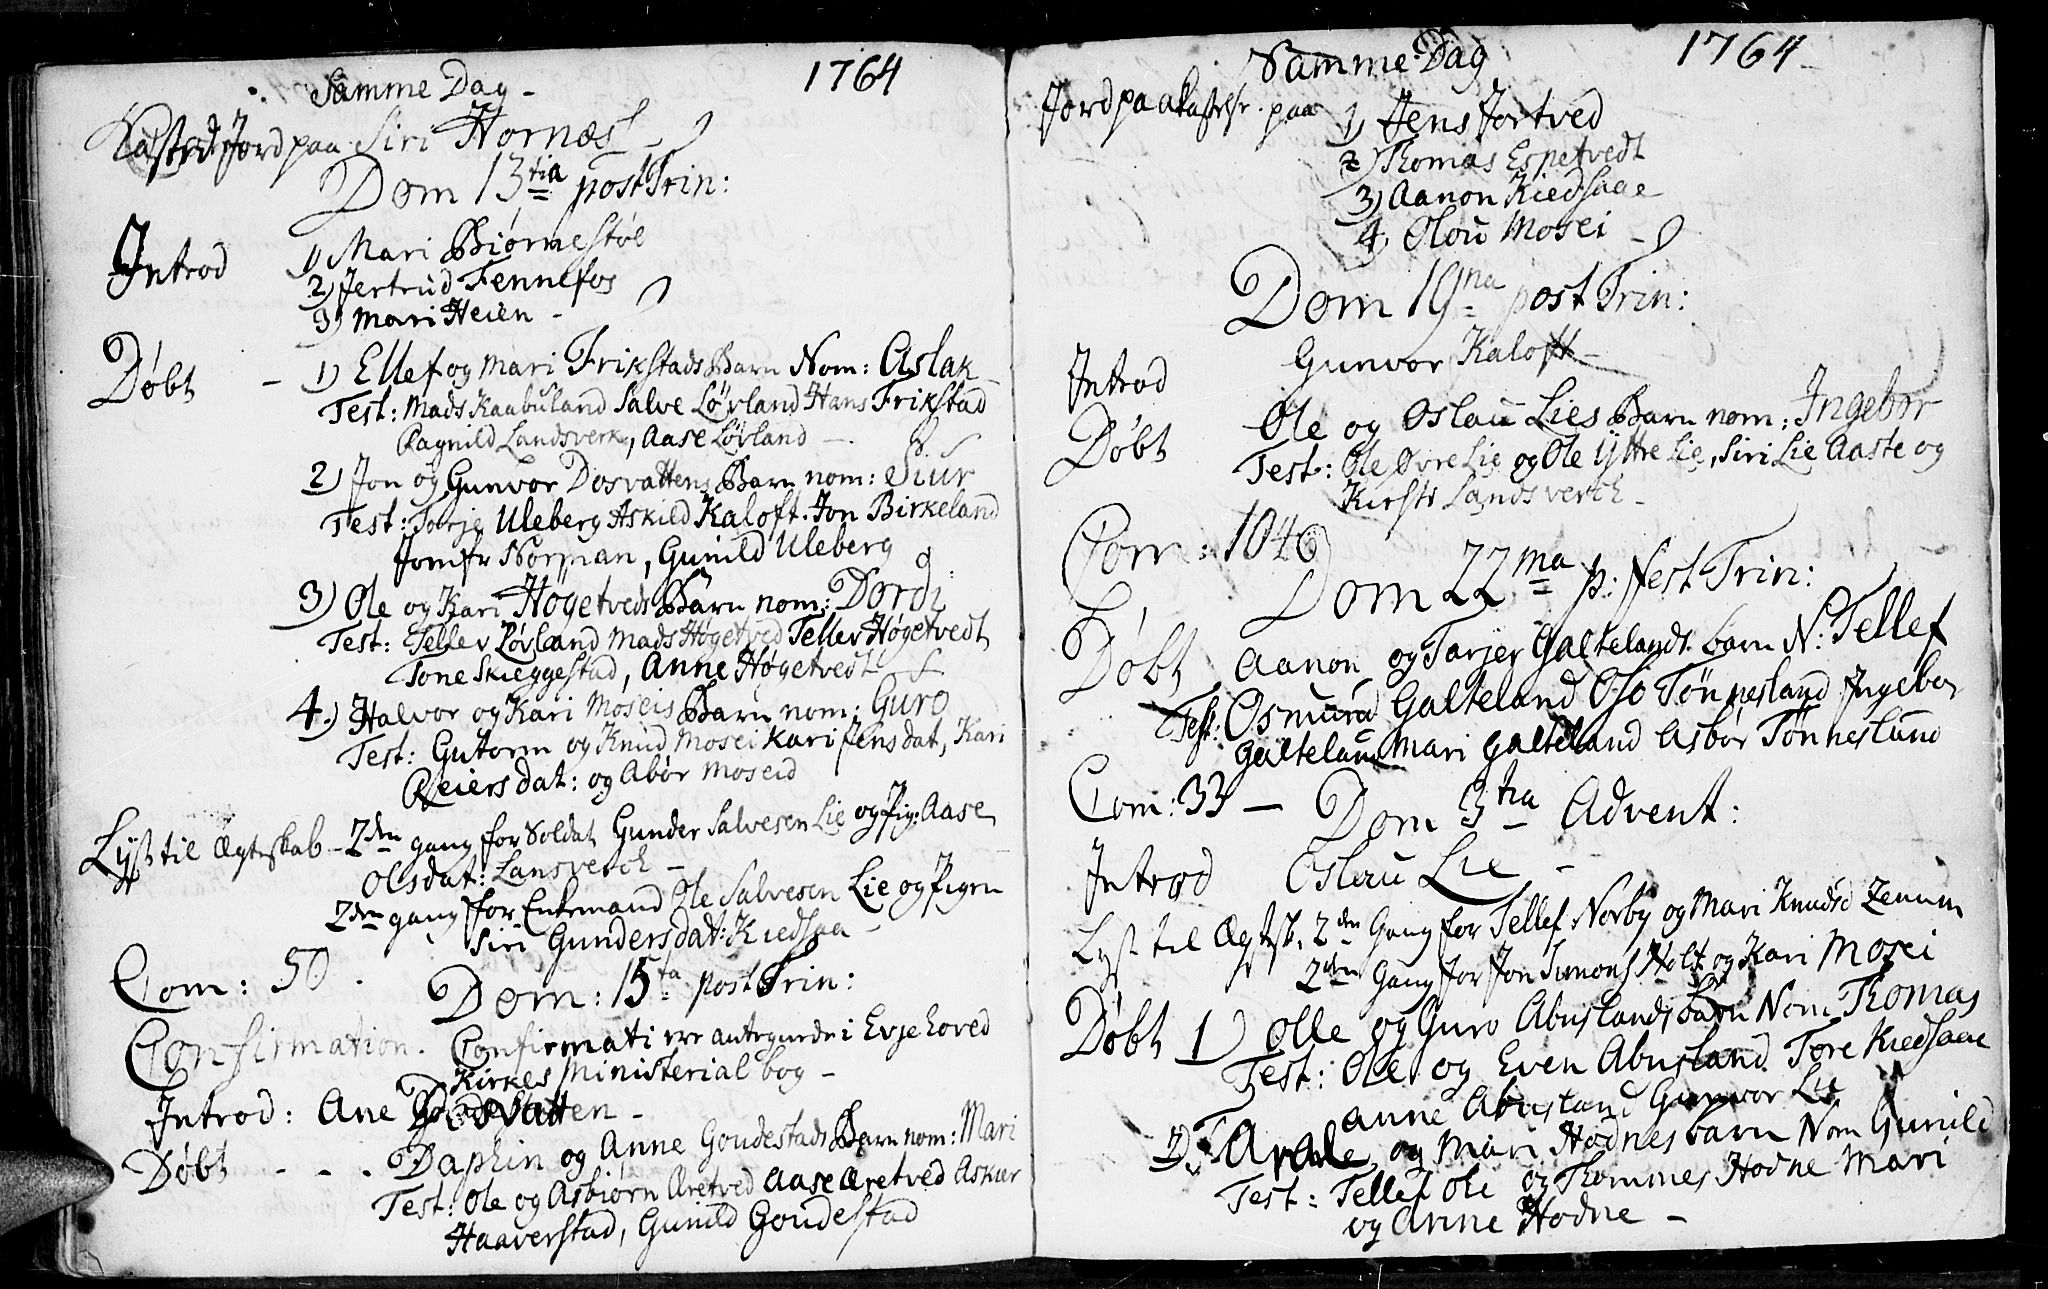 Samme Dag - 1764
Kasted Jord paa Siri Hornæs -
Dom 13tia post Trin:
Introd 1) Mari Biørnestøl
2) Jertrud Fennefos
3) Mari Heien -
Døbt - 1) Ellef og Mari Frikstads Barn Nom: Aslak
Test: Mads Kaabuland Salve Løvland Hans Frikstad
Ragnild Landsverk, Aase Løvland -
2) Jon og Gunvor Dosvattens Barn nom: Siur
Test: Torje Uleberg Askild Kaloft. Jon Birkeland
Jomfr Norman, Gunild Uleberg
3) Ole og Kari Høgetveds Barn nom: Dordi
Test: Tellev Løvland Mads Høgetved Tellev Høgetvedt
Tone Skieggestad, Anne Høgetvedt
4.) Halvor og Kari Moseis Barn nom: Guro
Test: Gutorm og Knud Mosei Kari Jensdat, Kari
Reiersdat: og Abør Moseid
Lyst til Ægteskab - 2den gang for Soldat Gunder Salvesen Lie og Pig: Aase
Olsdat: Lansverch -
2den gang for Enkemand Ole Salvesen Lie og Pigen
Siri Gundersdat: Kiedsaa -
Com: 50.
Dom: 15ta post Trin:
Confirmation. Confirmati ere antegnede i Evje hoved
Kirkes Ministerial bog -
Introd: Ane Dosvatten -
Døbt - - - Daphin og Anne Goudestads Barn nom: Mari
Test: Ole og Asbiørn Aretved Aase Aretved Askier
Haaverstad, Gunild Goudestad
Samme Dag 1764
Jord paakastelse paa 1) Jens Jortved
2) Thomas Espetvedt
3) Aanon Kiedsaae
4) Olou Mosei -
Dom 19na post Trin:
Introd Gunvor Kaloft -
Døbt Ole og Oslau Lies Barn nom: Ingebor
Test: Ole Øvre Lie og Ole Yttre Lie, Siri Lie Aaste og
Kirsti Landsverch -
Com: 104
Dom 22ma p: fest Trin:
Døbt Aanon og Tarjer Galtelands barn N: Tellef
Test: Osmund Galteland Oso Tønnesland Ingebor
Galteland Mari Galteland Asbør Tønneslund
Com: 33 - Dom 3tia Advent:
Introd Oslau Lie -
Lyst til Ægtsk. 2den Gang for Tellef Norby og Mari Knudsd
2den Gang for Jon Simons Holt og Kari Mosei
Døbt 1) Olle og Guro Abuslands barn Nom Thomas
Test: Ole og Even Abusland Tore Kiedsaae
Anne Abusland Gunvor Lie
2) Tarale og Mari Hodnes barn Nom Gunild
Test: Tellef Ole og Thommes Hodne Mari
og Anne Hodne -